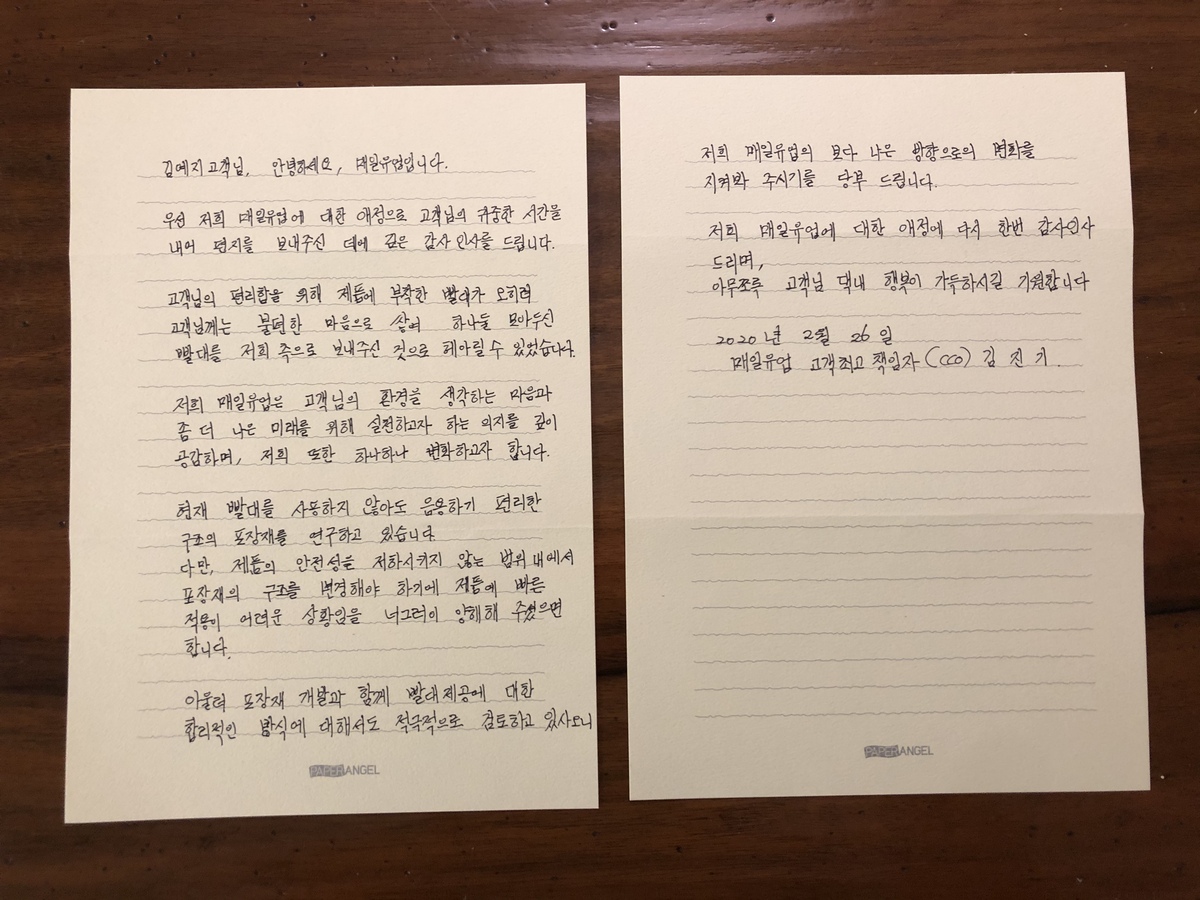 김예지 고객님, 안녕하세요, 매일유업입니다.
우선 저희 매일유업에 대한 애정으로 고객님의 귀중한 시간을
내어 편지를 보내주신 데에 깊은 감사 인사를 드립니다.
고객님의 편리함을 위해 제품에 부착한 빨대가 오히려
고객님께는 불편한 마음으로 쌓여 하나둘 모아두신
빨대를 저희 쪽으로 보내주신 것으로 헤아릴 수 있었습니다.
저희 매일유업은 고객님의 환경을 생각하는 마음과
좀 더 나은 미래를 위해 실천하고자 하는 의지를 깊이
공감하며, 저희 또한 하나하나 변화하고자 합니다.
현재 빨대를 사용하지 않아도 음용하기 편리한
구조의 포장재를 연구하고 있습니다.
다만, 제품의 안전성을 저하시키지 않는 범위 내에서
포장재의 구조를 변경해야 하기에 제품에 빠른
적용이 어려운 상황임을 너그러이 양해해 주셨으면
합니다.
아울러 포장재 개발과 함께 빨대 제공에 대한
합리적인 방식에 대해서도 적극적으로 검토하고 있사오니
PAPER ANGEL
저희 매일유업의 보다 나은 방향으로의 변화를
지켜봐 주시기를 당부 드립니다.
저희 매일유업에 대한 애정에 다시 한번 감사인사
드리며,
아무쪼록 고객님 댁내 행복이 가득하시길 기원합니다
2020년 2월 26일
매일유업 고객최고책임자(CCO) 김진기.
PAPER ANGEL